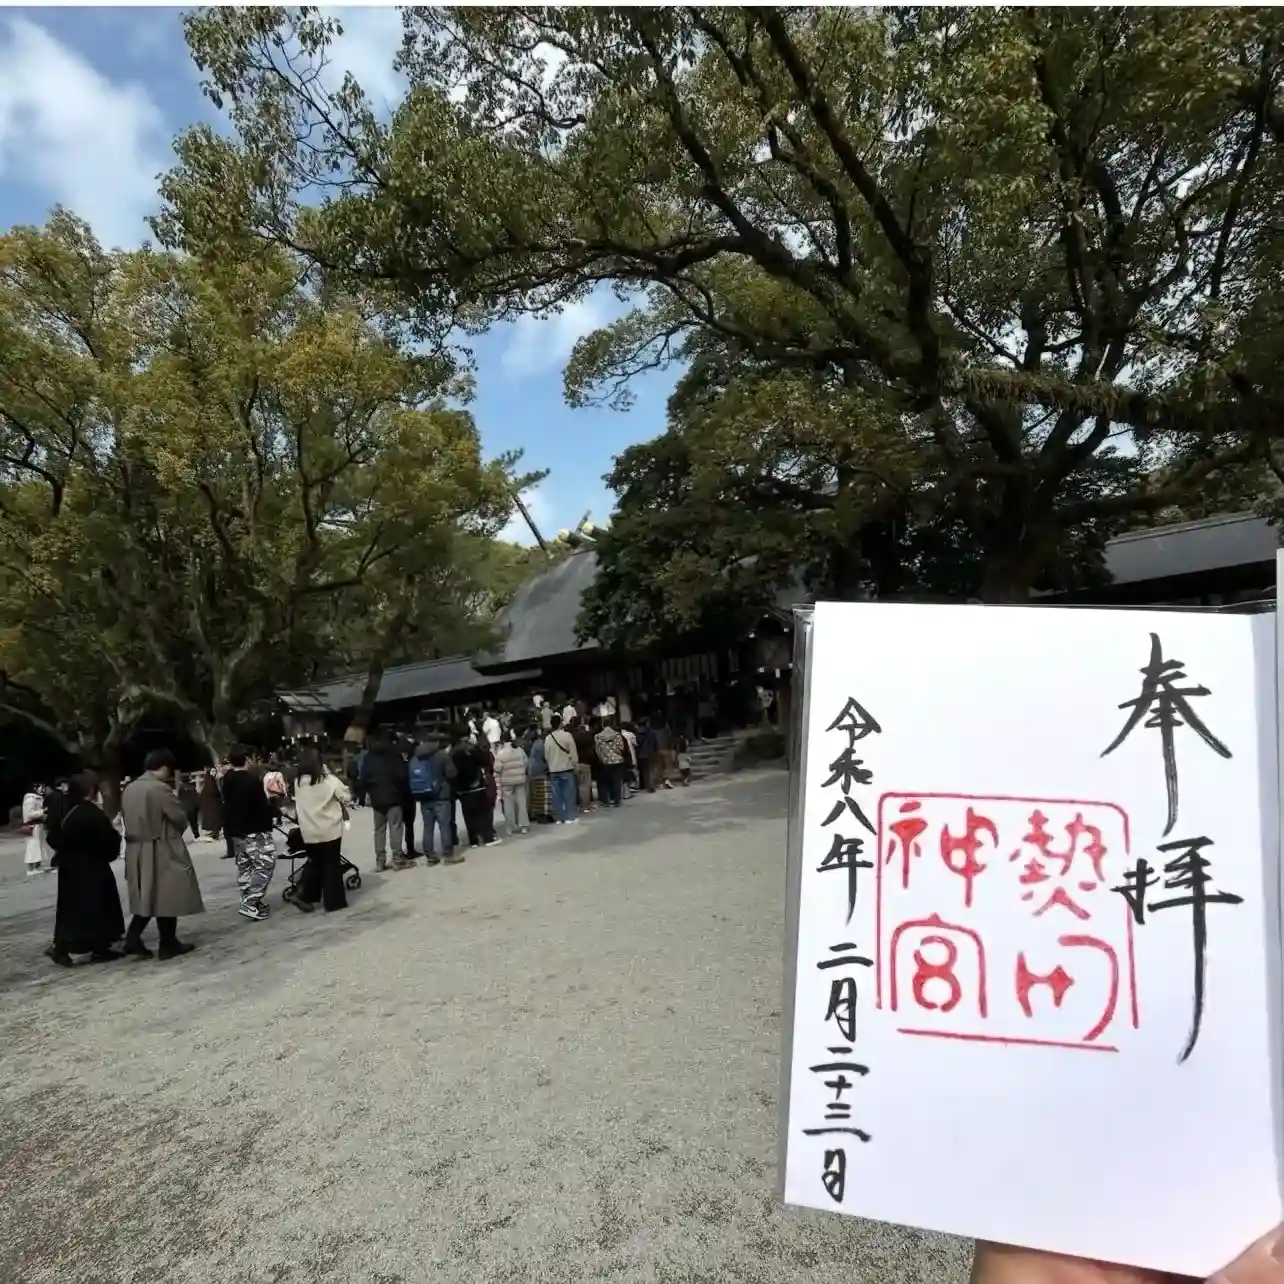 奉拝
熱田
神宮
令和八年 二月二十三日